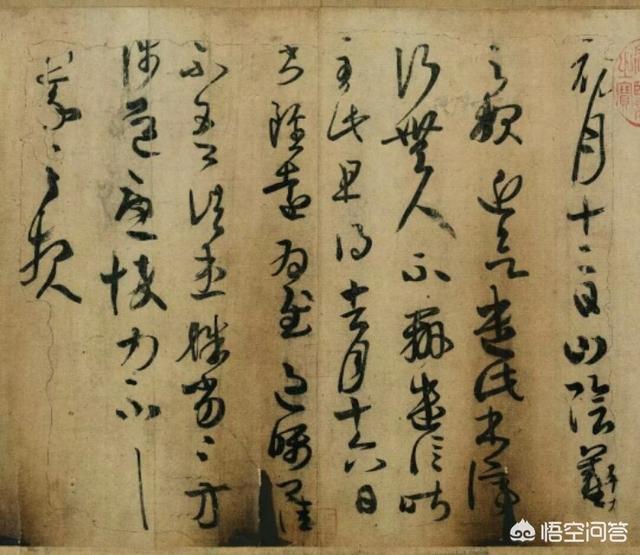 初月十二日山陰羲
之報近欲遣此書停
行無人不辦遣信昨
至此且得去月十六日
書雖遠為慰過囑卿佳
不吾諸患殆劣劣方
涉道憂悴力不具
羲之報
悟空问答